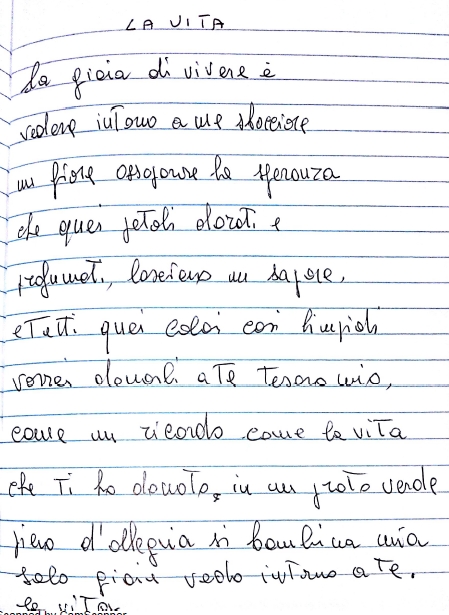 LA VITA
La gioia di vivere è
vedere intorno a me sbocciare
un fiore assaporare la speranza
che quei petali dorati e
profumati, lasciano un sapore,
e Tutti quei colori così limpidi
vorrei donarli a Te Tesoro mio,
come un ricordo come la viTa
che Ti ho donato, in un prato verde
pieno d'allegria sì bambina mia
solo gioia vedo intorno a Te.
la viTa.
Scanned by CamScanner